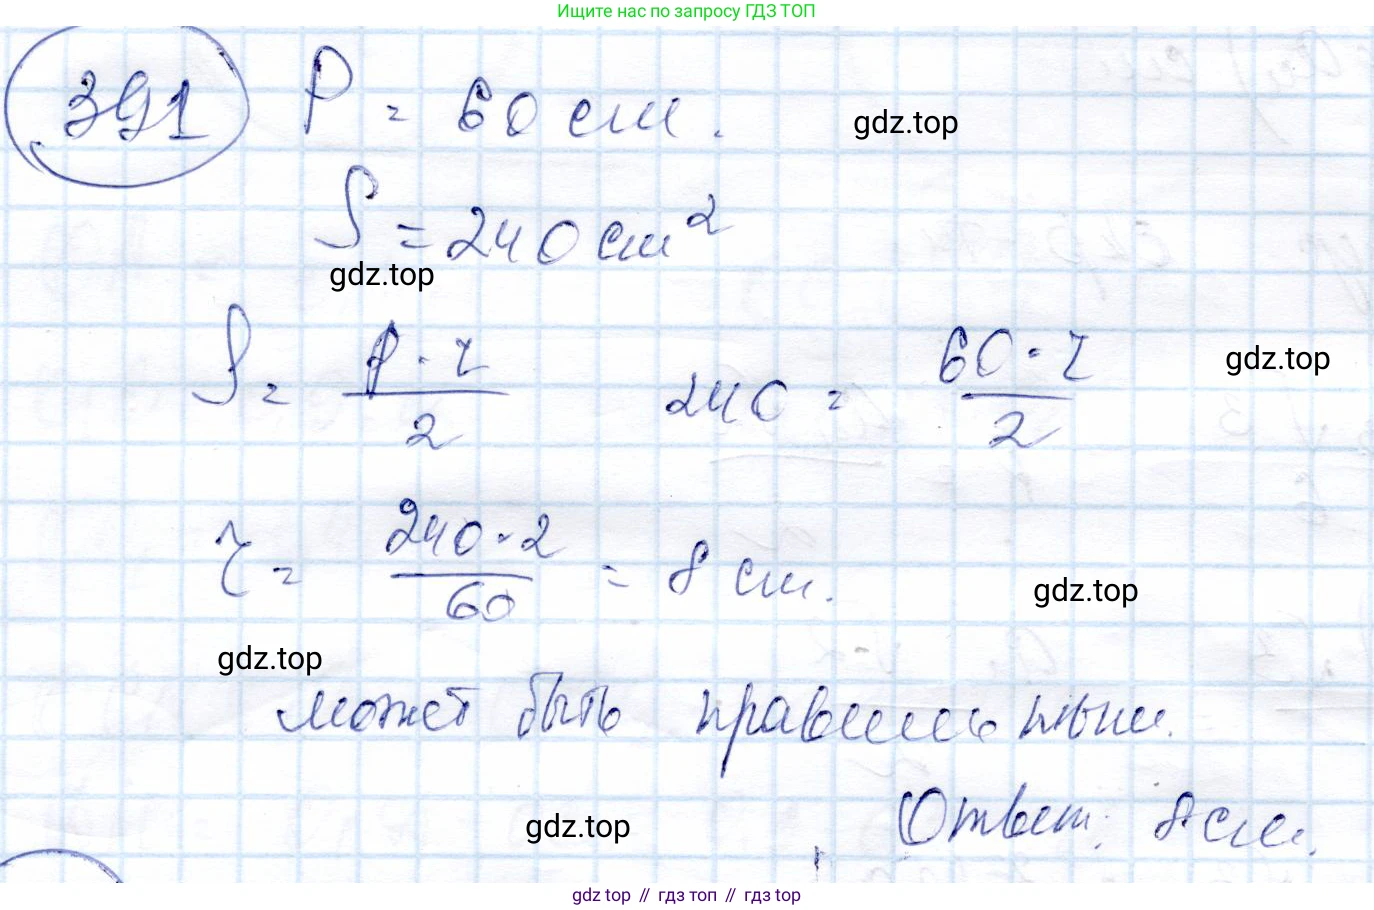 Ищите нас по запросу ГДЗ ТОП
391 P = 60 см.
gdz.top
S = 240 см²
gdz.top
S = P · r / 2 240 = 60 · r / 2
gdz.top
r = 240 · 2 / 60 = 8 см.
gdz.top
gdz.top
может быть правильным.
Ответ: 8 см.
gdz.top
gdz.top // гдз топ // gdz top